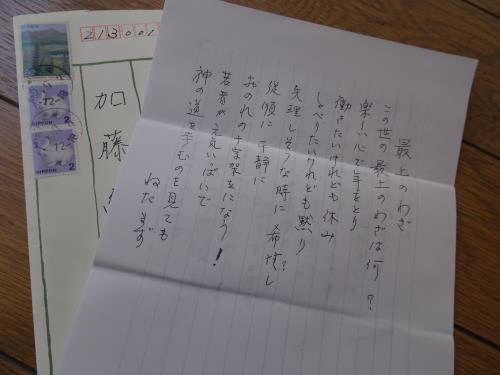 最上のわざ
この世の最上のわざは何?
楽しい心で年をとり
働きたいけれども休み
しゃべりたいけれども黙り
失理しそうな時に希望し
従順に平静に
おのれの十字架をになう!
若者が元気いっぱいで
神の道を歩むのを見ても
ねたまず
213001
加藤
NIPPON
2
NIPPON
2